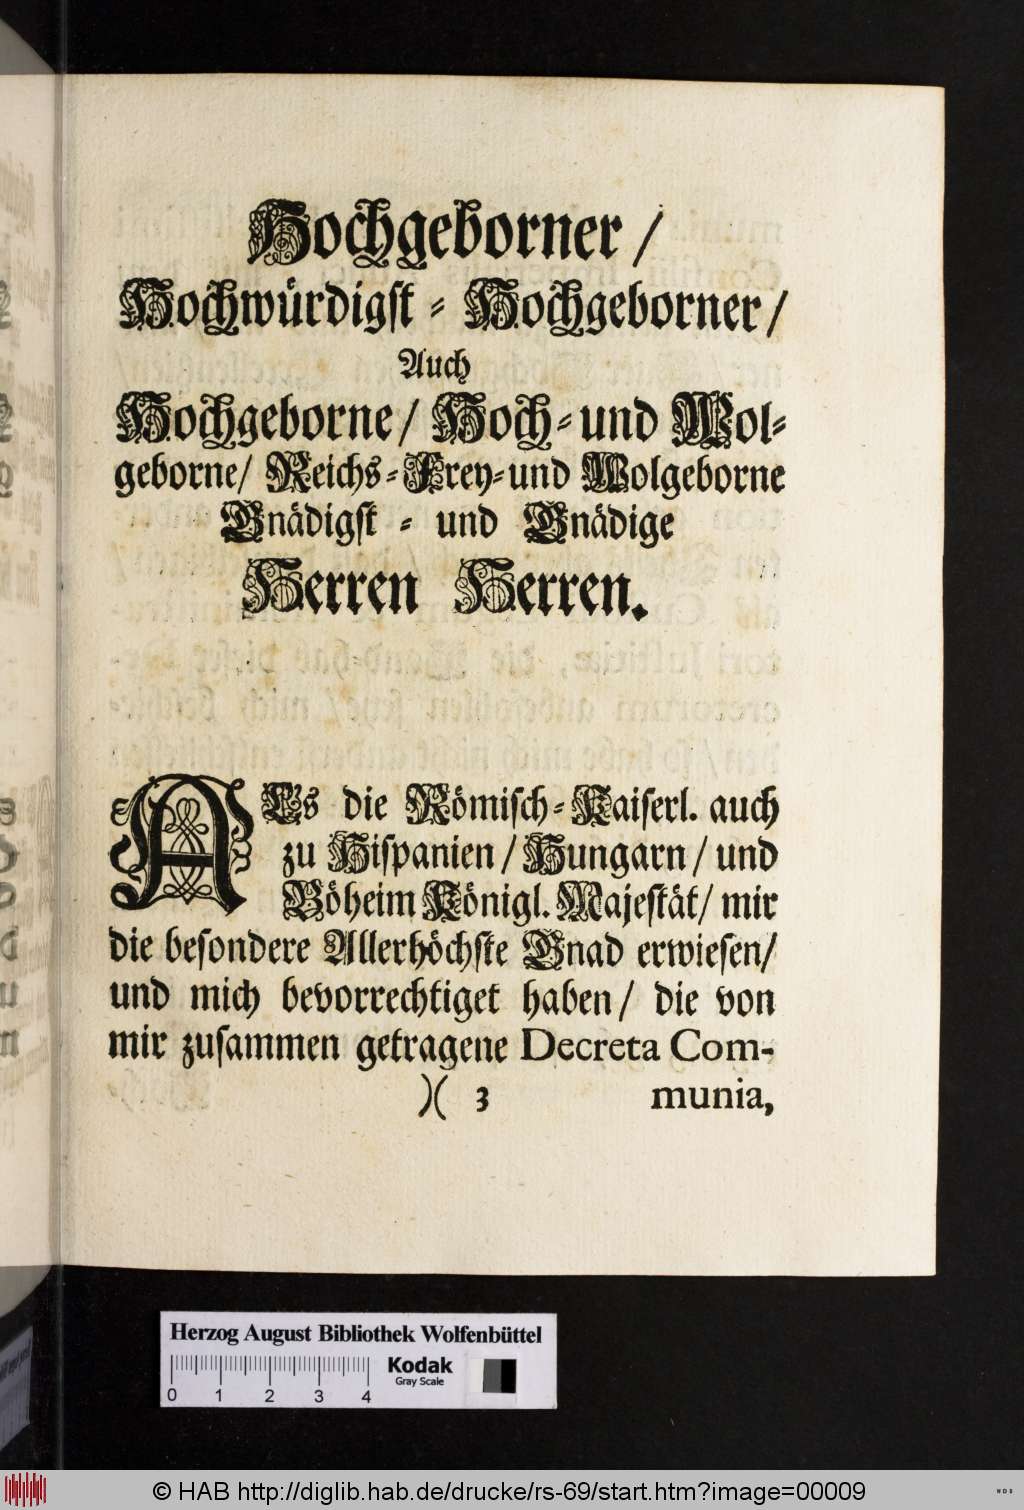 Hochgeborner /
Hochwürdigst - Hochgeborner /
Auch
Hochgeborne / Hoch- und Wol-
geborne / Reichs-Frey-und Wolgeborne
Gnädigst - und Gnädige
Herren Herren.
ALs die Römisch-Kaiserl. auch
zu Hispanien / Hungarn / und
Böheim Königl. Majestät / mir
die besondere Allerhöchste Gnad erwiesen /
und mich bevorrechtiget haben / die von
mir zusammen getragene Decreta Com-
)( 3 munia,
Herzog August Bibliothek Wolfenbüttel
Kodak
Gray Scale
0 1 2 3 4
© HAB http://diglib.hab.de/drucke/rs-69/start.htm?image=00009